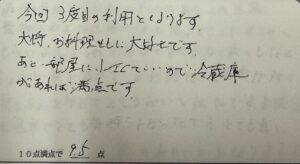 今回 3度目の利用となります。
大将、お料理ともに大好きです。
あと部屋に小さくていいので冷蔵庫
があれば満点です。
10点満点で 9.5 点